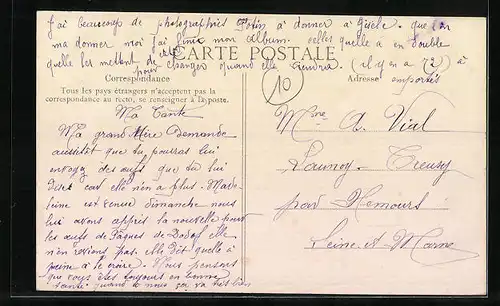 J'ai beaucoup de photographies Potin à donner à Gisèle. que l'on
ma donner moi j'ai finie mon album. celles quelle a en double
quelle les mettent de côté pour changer quand elle viendra (il y en a 72) à
emportés
CARTE POSTALE
Correspondance
Adresse
Tous les pays étrangers n'acceptent pas la
correspondance au recto, se renseigner à la poste.
10
Ma Tante
Ma grand Mère Demande
aussitôt que tu pourras lui
envoyer des œufs que tu lui
car elle n'en a plus. Made-
leine est venue dimanche nous
lui avons appris la nouvelle pour
les œufs de Pâques de elle
n'en reviens pas. elle dit quelle à
peine à le croire. Nous pensons
que vous êtes toujours en bonne
santé quand à nous ça va très bien
Mme A. Vial
Launoy - Treuzy
par Nemours
Seine et Marne